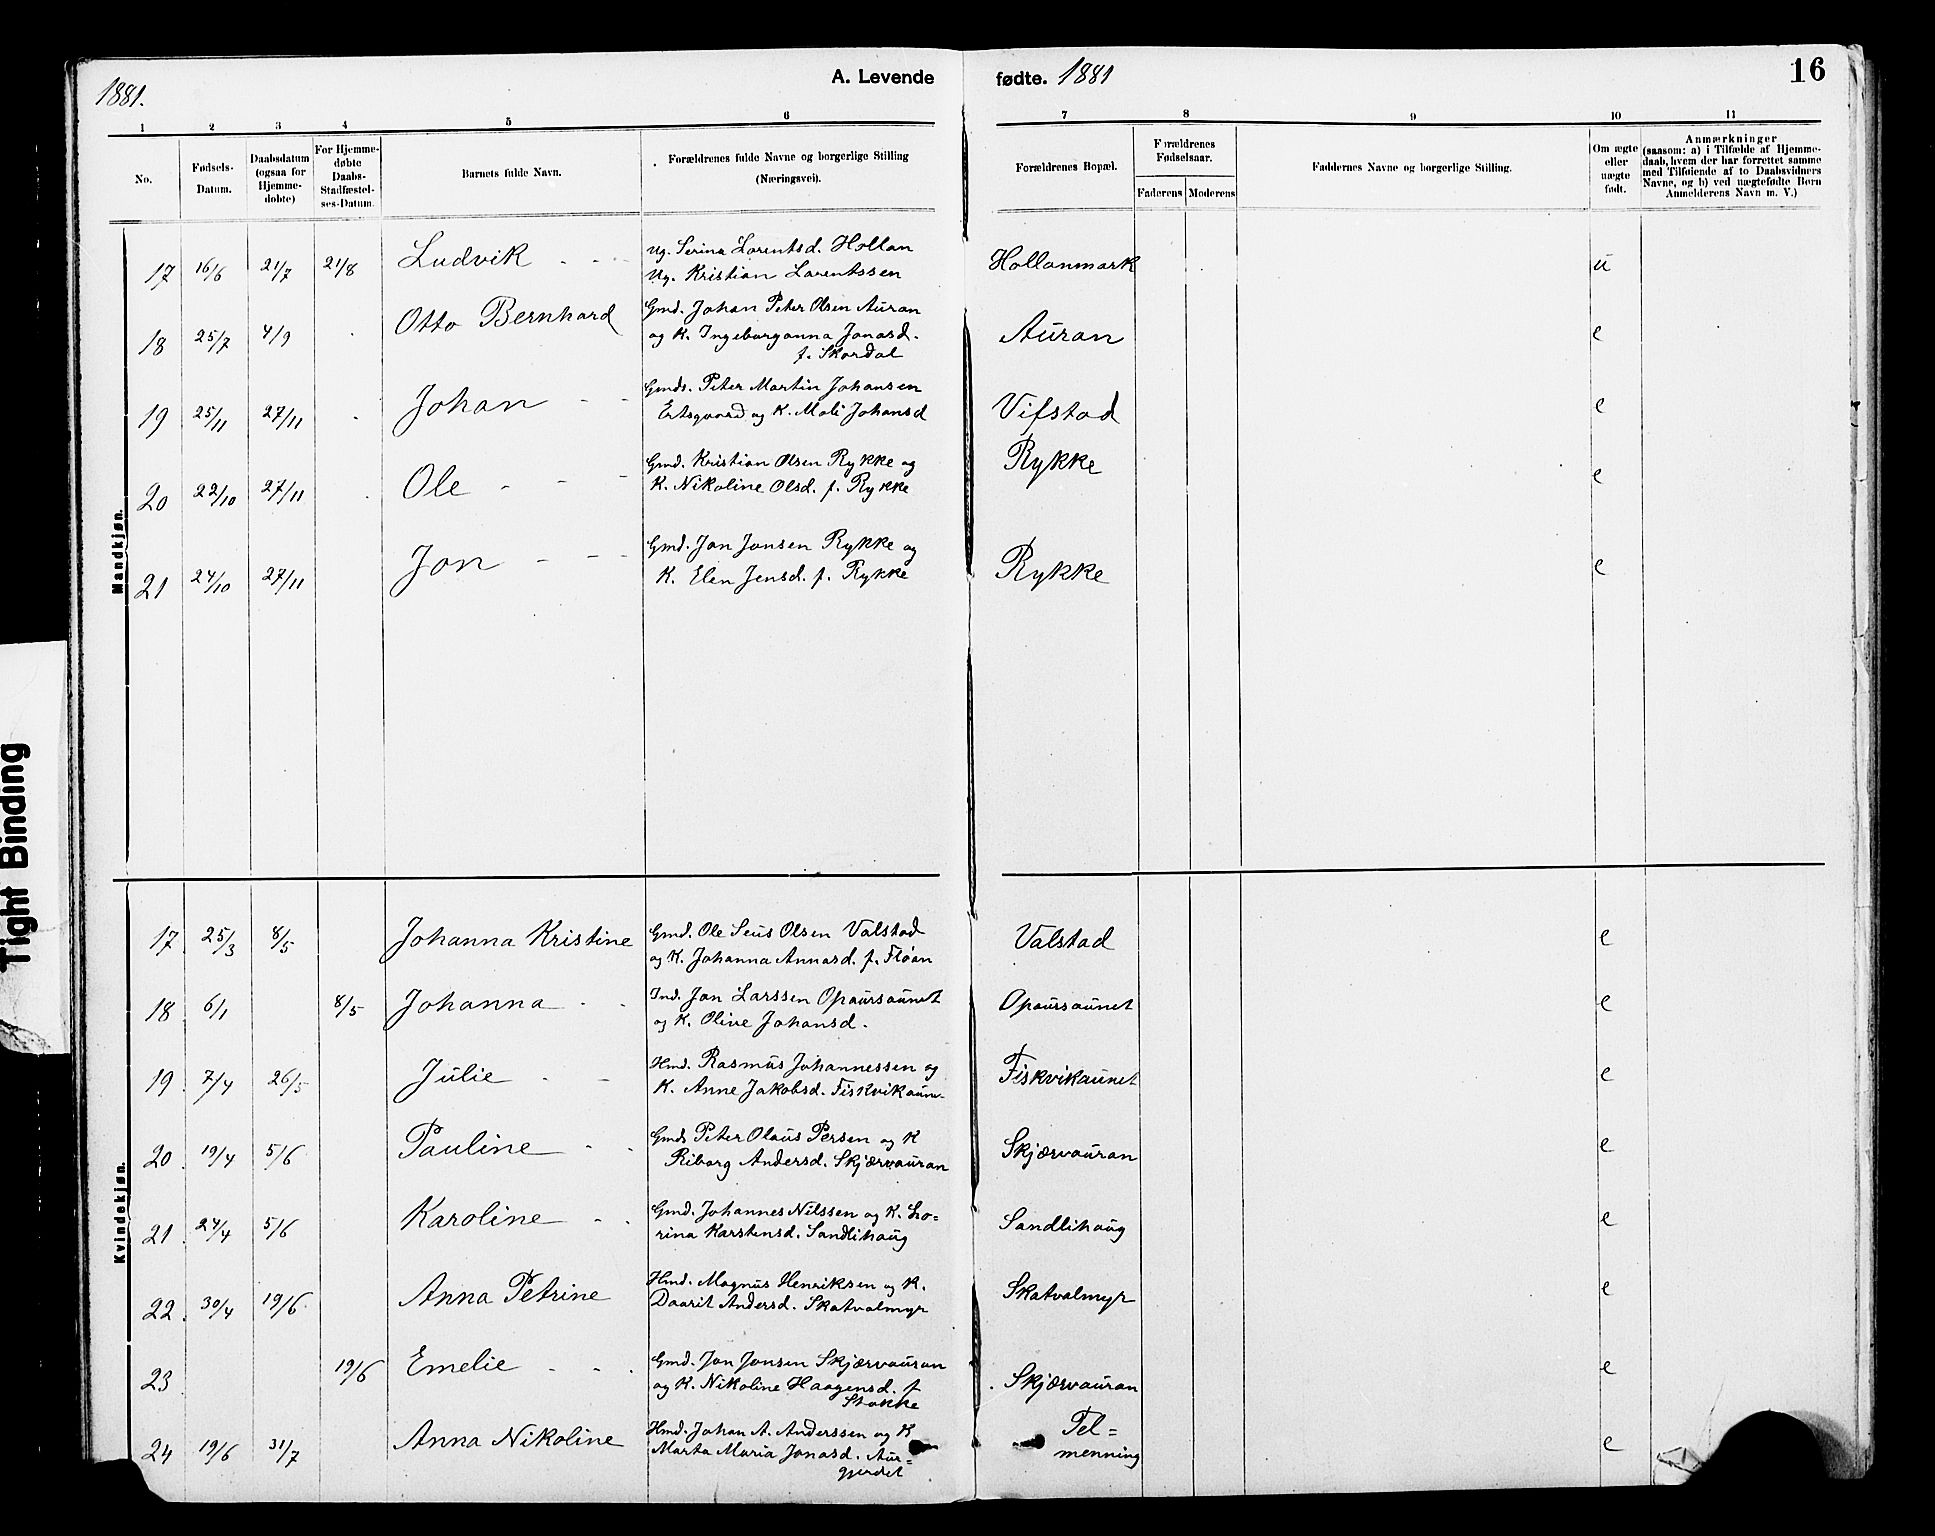 1881.
A. Levende
fødte. 1881
16
1 2 3 4 5 6 7 8 9 10 11
No.
Fødsels-
Datum.
Daabsdatum
(ogsaa for
Hjemme-
døbte)
For Hjemme-
døbte
Daabs-
Stadfæstel-
ses-Datum.
Barnets fulde Navn.
Forældrenes fulde Navne og borgerlige Stilling
(Næringsvei).
Forældrenes Bopæl.
Forældrenes
Fødselsaar.
Faderens Moderens
Faddernes Navne og borgerlige Stilling.
Om ægte
eller
uægte
født.
Anmærkninger
(saasom: a) i Tilfælde af Hjemme-
daab, hvem der har forrettet samme
med Tilføiende af to Daabsvidners
Navne, og b) ved uægtefødte Børn
Anmelderens Navn m. V.)
Mandkjøn.
17 16/6 21/7 21/8 Ludvik - - - Ug. Serina Lorentsd. Hollan Hollanmark u
Ug. Kristian Larentssen
18 25/7 4/9 Otto Bernhard Gmd. Johan Peter Olsen Auran Auran e
og K. Ingeborganna Jonasd.
f. Skordal
19 25/11 27/11 Johan - - Gmds. Peter Martin Johansen Vifstad e
Ertsgaard og K. Mali Johansd
20 22/10 27/11 Ole - - - Gmd. Kristian Olsen Rykke og Rykke e
K. Nikoline Olsd. f. Rykke
21 24/10 27/11 Jon - - - Gmd. Jon Jonsen Rykke og Rykke e
K. Elen Jensd. f. Rykke
Kvindekjøn.
17 25/3 8/5 Johanna Kristine Gmd. Ole Seus Olsen Valstad Valstad e
og K. Johanna Annasd. f. Fløan
18 6/1 8/5 Johanna - - Ind. Jon Larssen Opaursaunet Opaursaunet e
og K. Oline Johansd.
19. 7/4 26/5 Julie - - Hmd. Rasmus Johannessen og Fiskvikaunet e
K. Anne Jakobsd. Fiskvikaune-
20. 19/4 5/6 Pauline - - Gmds Peter Olaus Persen og K Skjærvauran e
Riborg Andersd. Skjærvauran
21. 24/4 5/6 Karoline - - Gmd. Johannes Nilssen og K. Lo= Sandlihaug e
rina Karstensd. Sandlihaug
22. 30/4 19/6. Anna Petrine Hmd. Magnus Henriksen og K. Skatvalmyr e
Daarit Andersd. Skatvalmyr
23 19/6 Emelie - - - Gmd. Jon Jonsen Skjærvauran Skjærvauran e
og K. Nikoline Haagensd. f
Stokke
24 19/6 31/7 Anna Nikoline Hmd. Johan A. Anderssen og K Fel= e
Marta Maria Jonasd. Aur= menning
gjerdet
Tight Binding